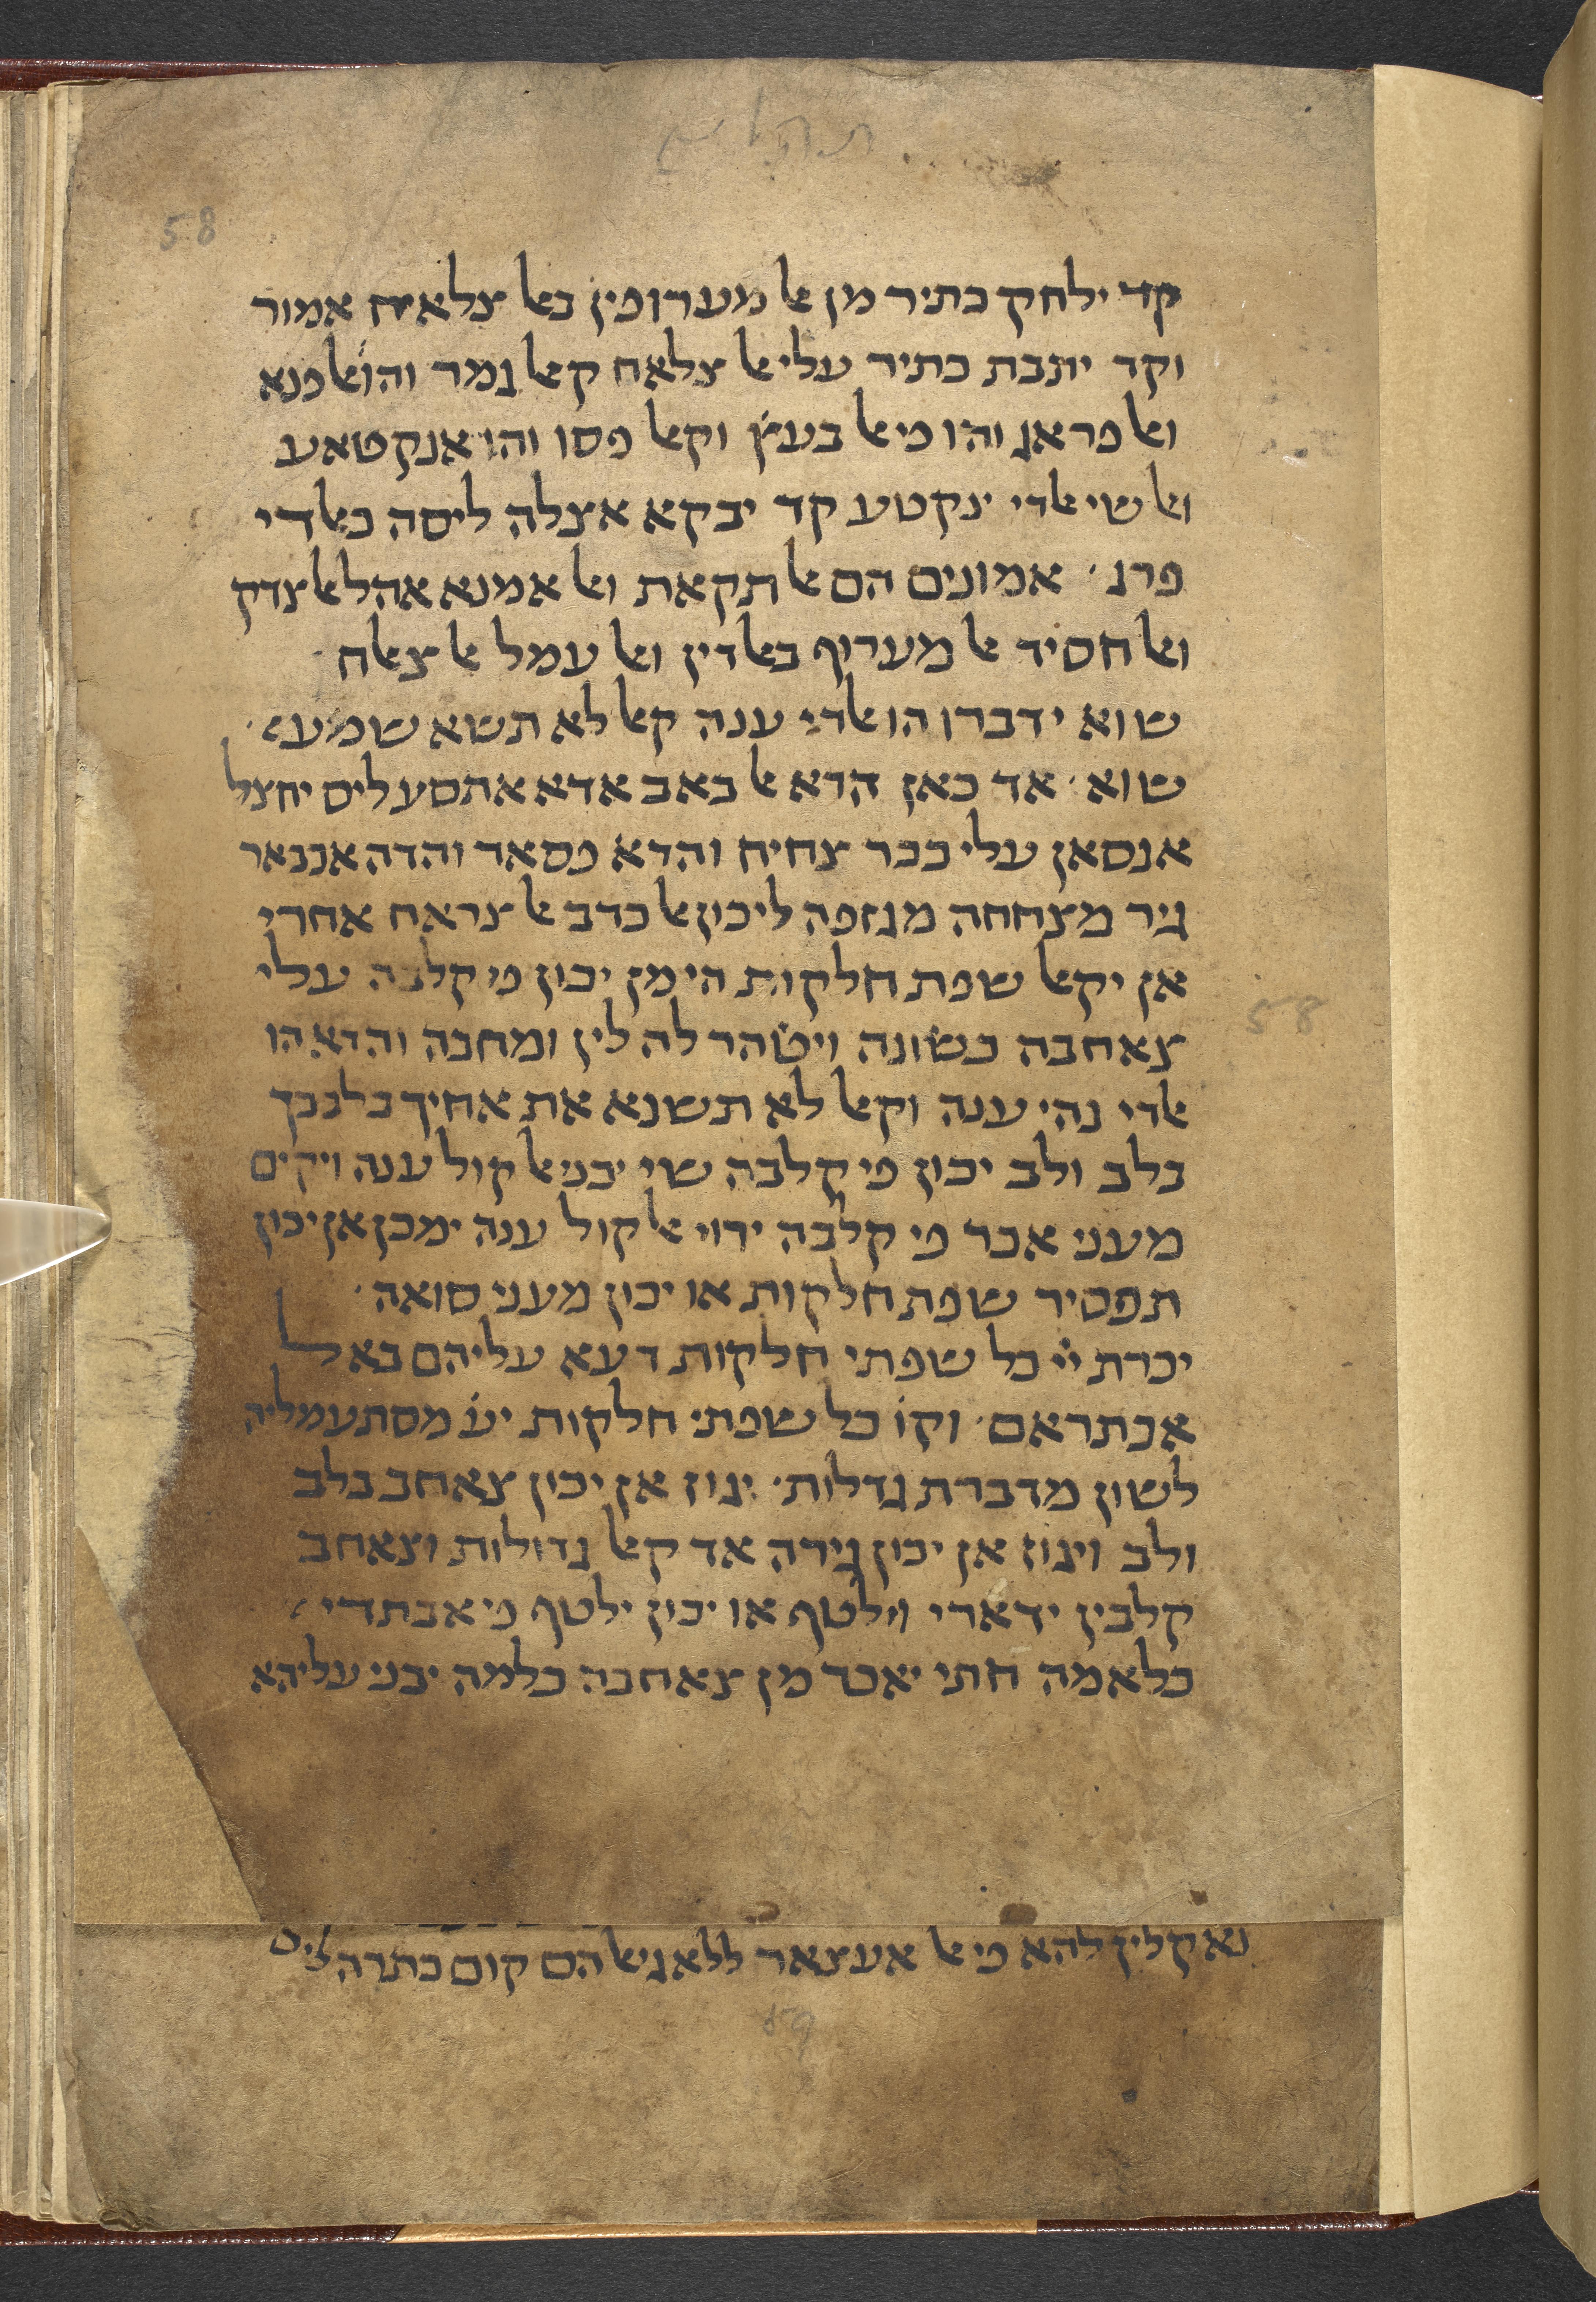 58
קד ילחק כתיר מן אלמערופין באלצלאח אמור
וקד יתבת כתיר עלי אלצלאח קאל גמר והו אלפנא
ואלפראג והו פי אלבעץ̇ וקאל פסו והו אנקטאע
ואלשי אלדי ינקטע קד יבקא אצלה ליסה כאלדי
פרג ׳ אמונים הם אלתקאת ואלאמנא אהל אלצדק
ואלחסיד אלמערוף באלדין ואלעמל אלצאלח
שוא ידברו הו אלדי ענה קאל לא תשא שמע
שוא ׳ אד כאן הדא אלבאב אדא אתסע ליס יחצל
אנסאן עלי כבר צחיח והדא פסאד והדה אכבאר
גיר מצחחה מגזפה ליכון אלכדב אלצראח אחרי
אן יקאל שפת חלקות הי מן יכון פי קלבה עלי
צאחבה כשונה ויט̇הר לה לין ומחבה והדא הו
אלדי נהי ענה וקאל לא תשנא את אחיך בלבבך
בלב ולב יכון פי קלבה שי יבני אלקול ענה ויקים
מעני אכר פי קלבה ירוי אלקול ענה ימכן אן יכון
תפסיר שפת חלקות או יכון מעני סואה ׳
יכרת ייי כל שפתי חלקות דעא עליהם באל
אכתראם ׳ וקו̇ כל שפתי חלקות יע̇ מסתעמליה
לשון מדברת גדלות ׳ יגוז אן יכון צאחב בלב
ולב ויגוז אן יכון גירה אד קאל גדולות וצאחב
קלבין ידארי וילטף או יכון ילטף פי אבתדי
כלאמה חתי יאכד מן צאחבה כלמה יבני עליהא
58
נאקלין להא פי אלאעצאר ללאגיאל הם קום כתרה ליס
59